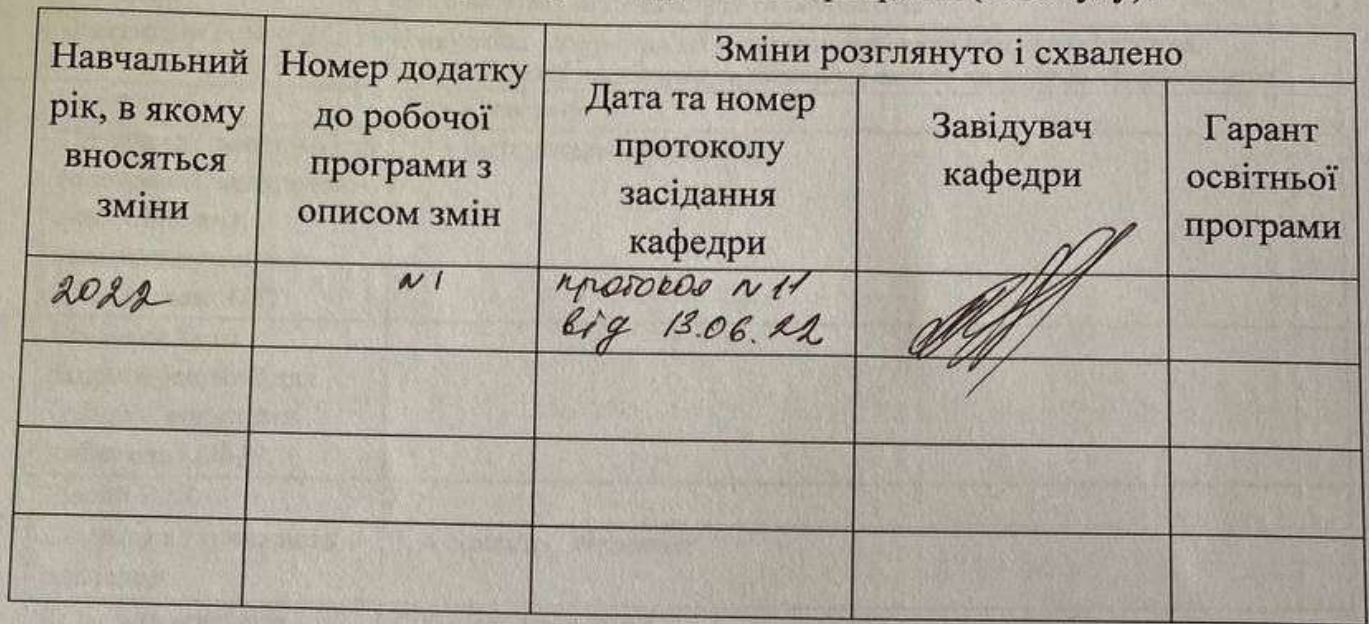 Навчальний
рік, в якому
вносяться
зміни
Номер додатку
до робочої
програми з
описом змін
Зміни розглянуто і схвалено
Дата та номер
протоколу
засідання
кафедри
Завідувач
кафедри
Гарант
освітньої
програми
2022
N 1
протокол N 11
від 13.06.22